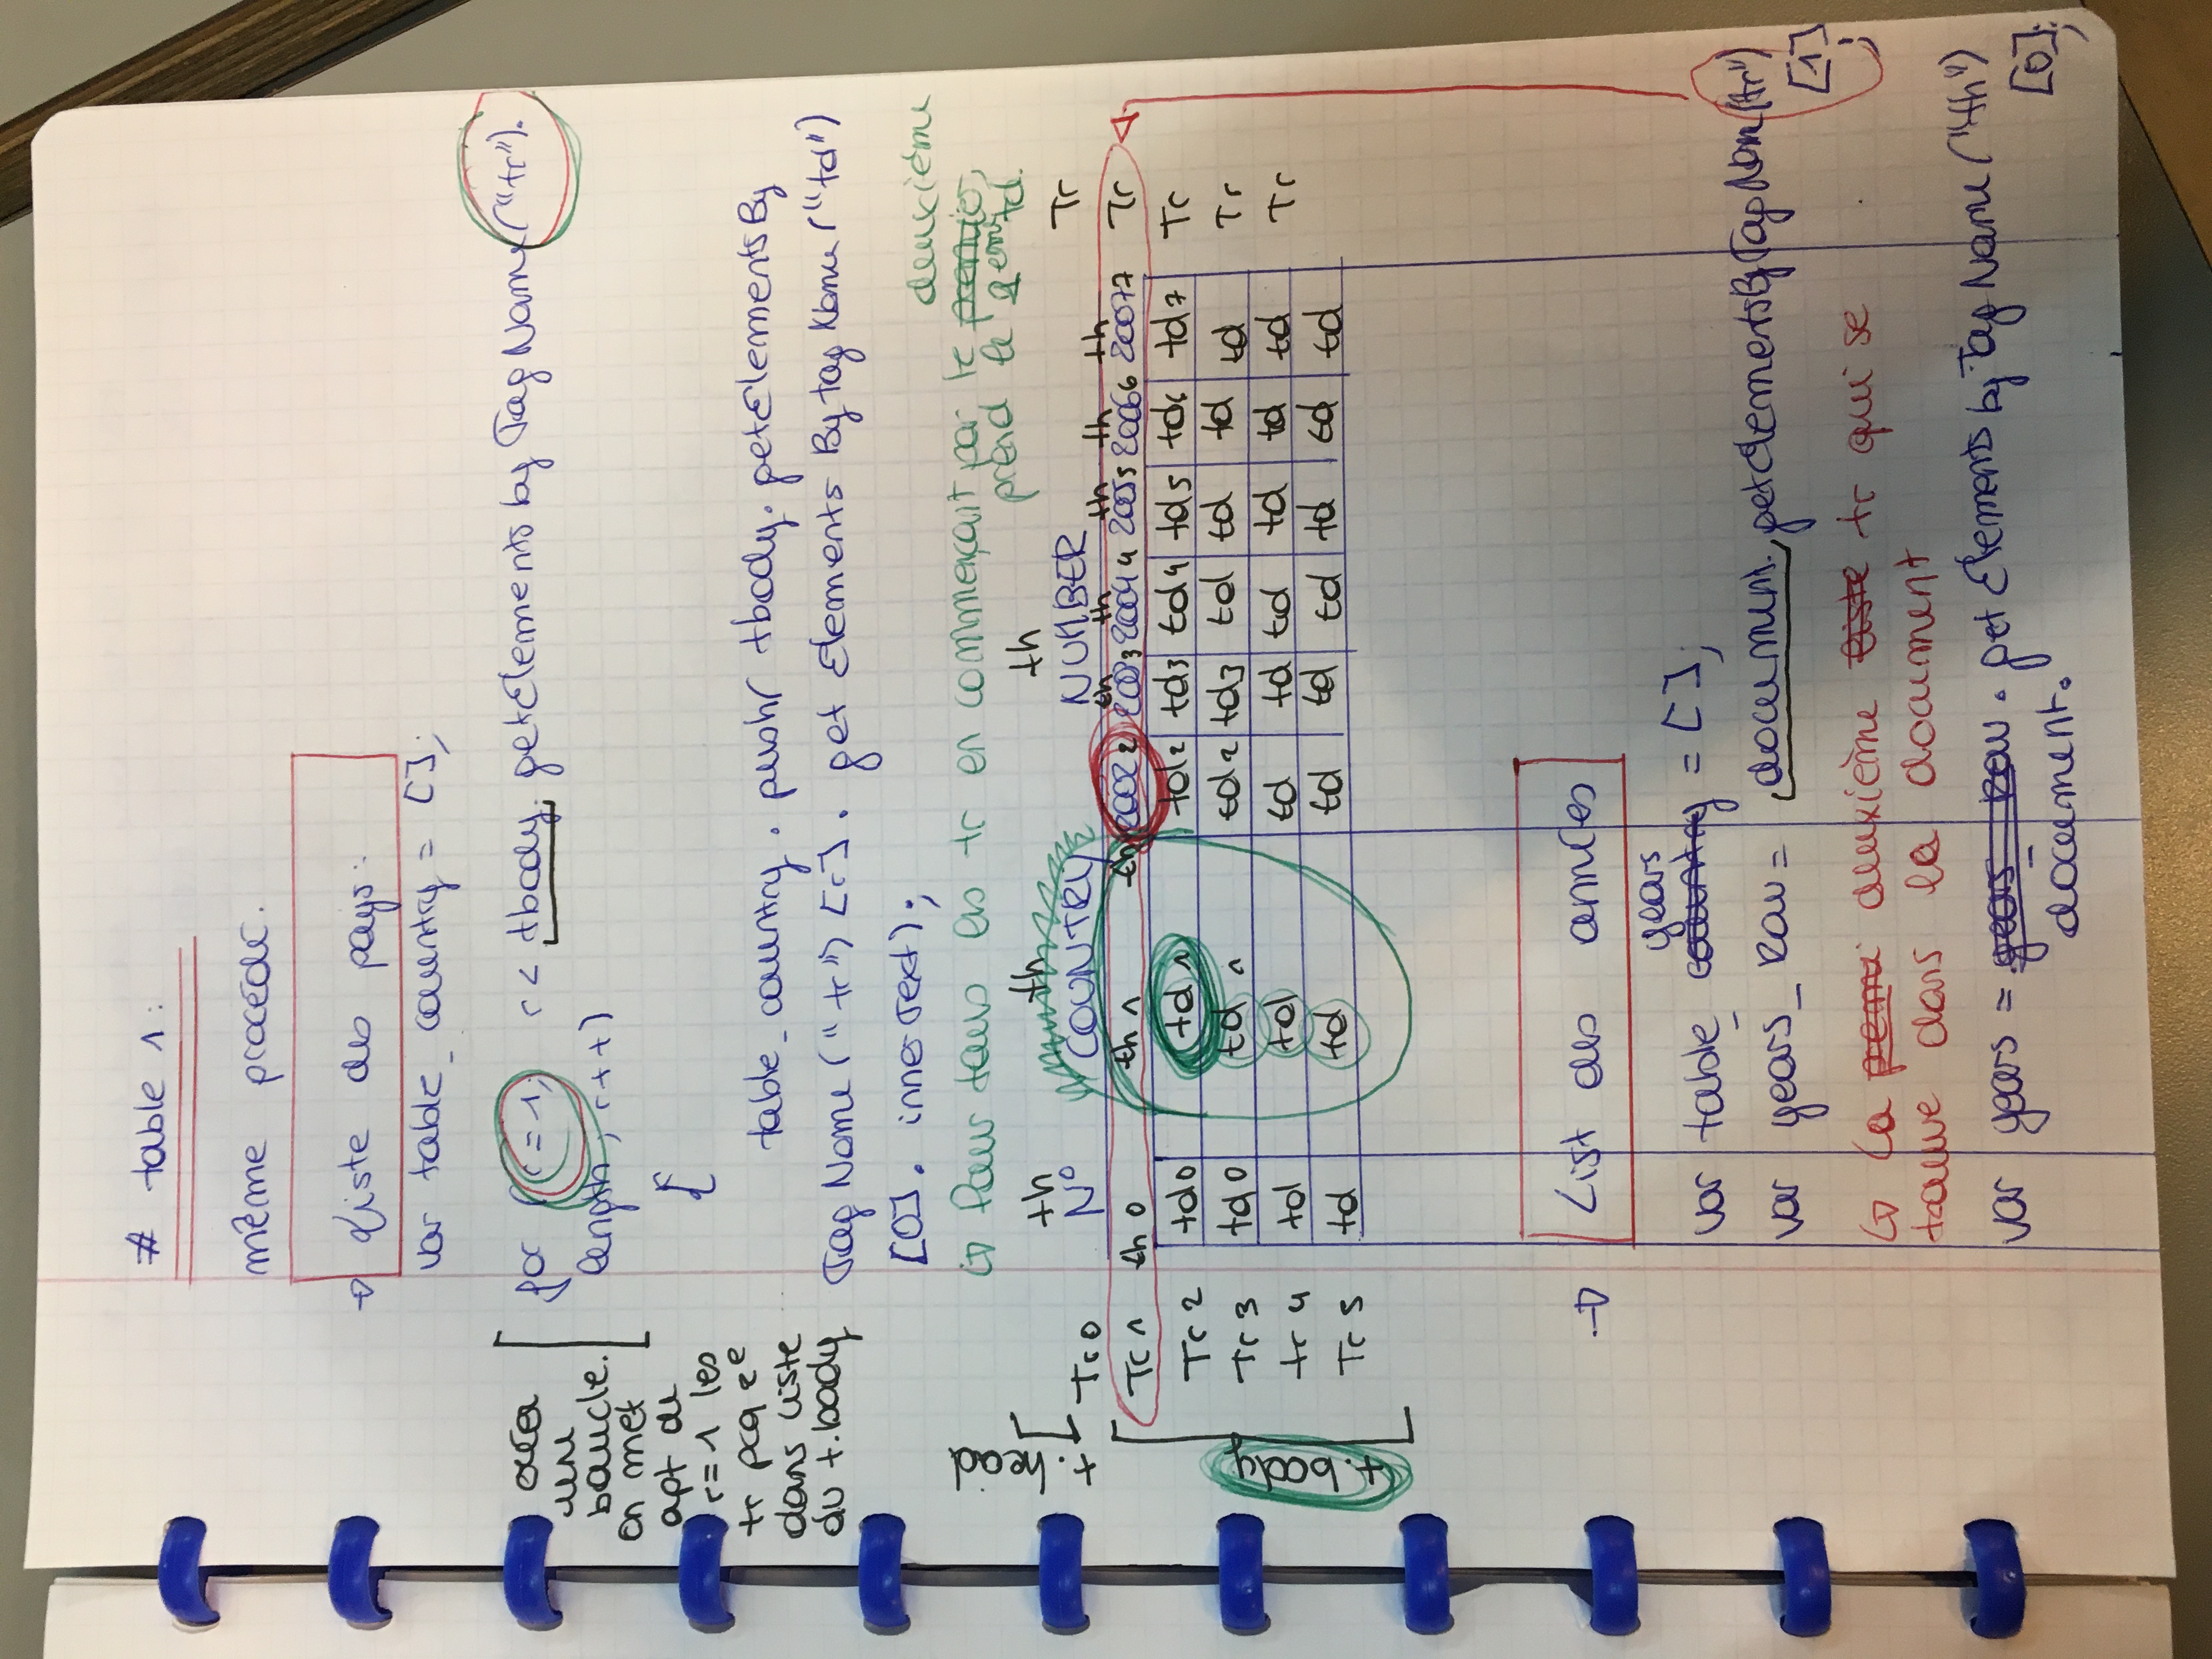 # table 1:
même procédé.
→ Liste des pays:
var table_country = [];
créer
une
boucle.
on met
apt de
r=1 les
tr pcq 2e
dans liste
du t.body
for (r=1; r < tbody. getElements by Tag Name ("tr").
length; r++)
{
table_country . push( tbody. getElementsBy
Tag Name ("tr") [r]. get Elements By tag Name ("td")
[0]. inner Text);
deuxième
↳ Pour tous les tr en commençait par le premier,
prend le 2em td.
t.head
th th th
Tr0 N° COUNTRY NUMBER Tr
th th th th th
Tr 1 th 0 th 1 th 2002 2 2003 3 2004 4 2005 5 2006 6 2007 7 Tr
t.body
Tr 2 td0 td 1 td2 td3 td4 td5 td6 td7 Tr
Tr 3 td0 td 1 td2 td3 td td td td Tr
tr 4 td td td td td td td td Tr
Tr 5 td td td td td td td td
→ List des années
years
var table_ country = [];
var years_ Row = document. getElementsByTag Nam ("tr")
[1]
;
↳ la premi deuxième liste tr qui se
trouve dans la document
var years = years_ Row . get Elements by Tag Name ("th")
[0];
document.